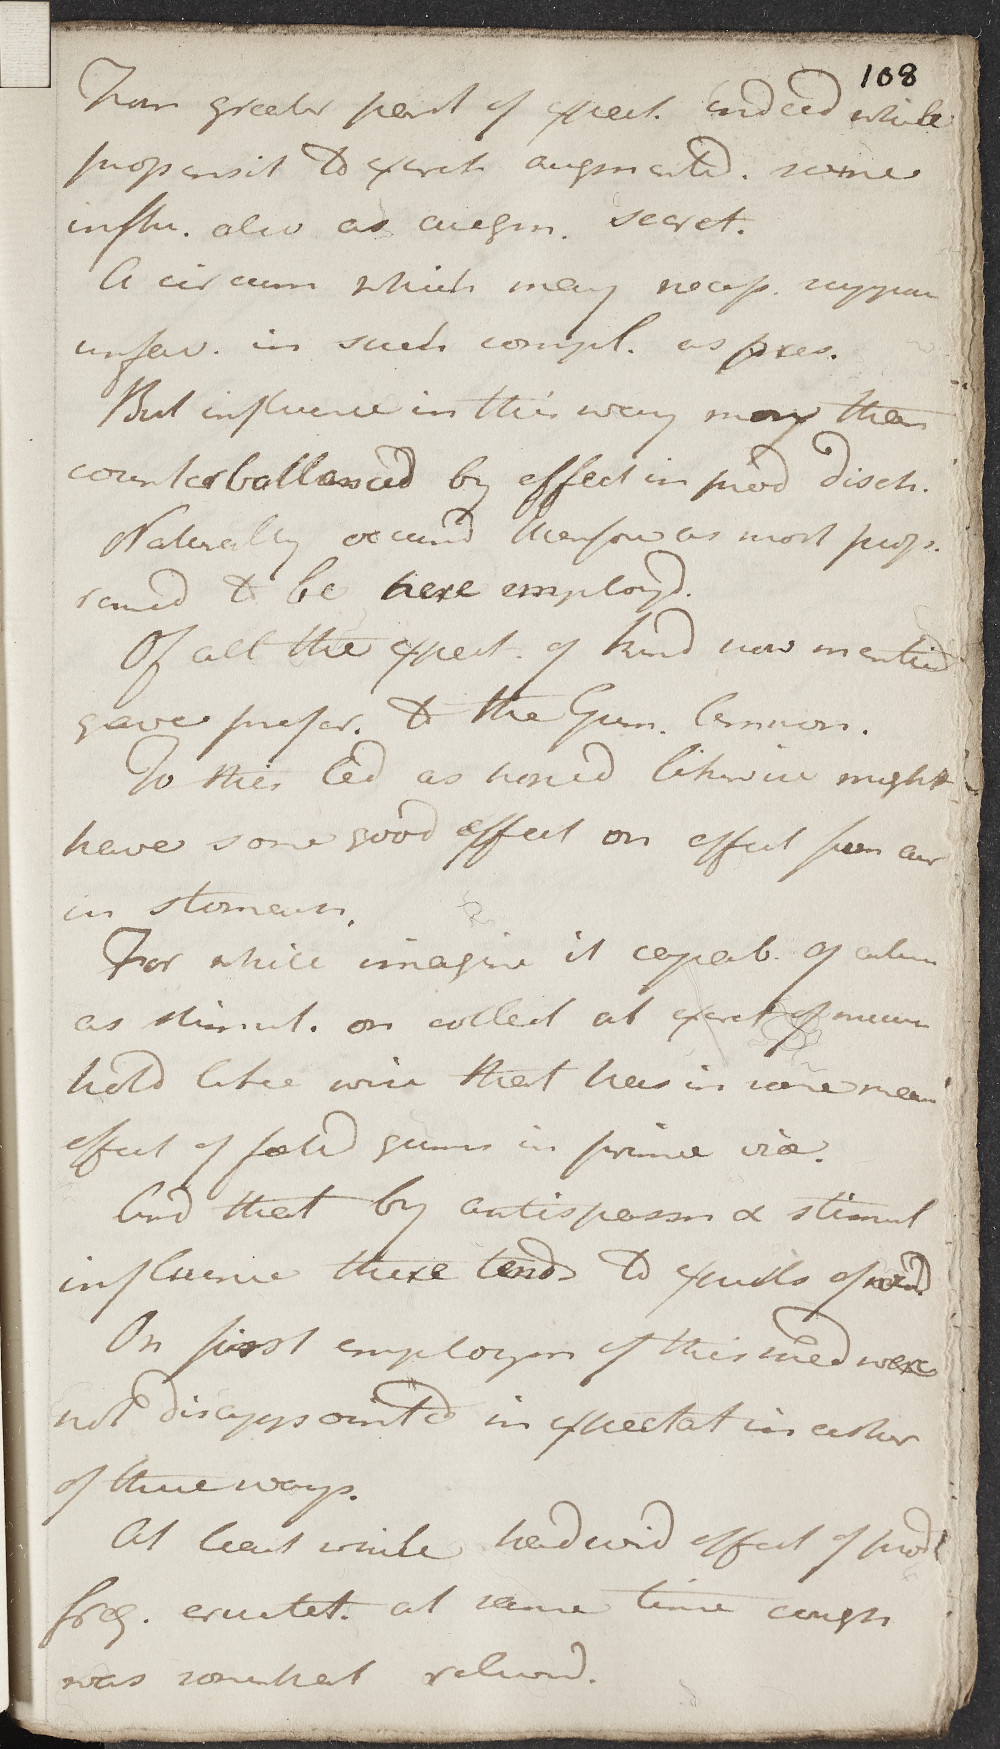 108
From greater part of expect. Indeed while
propensit to excret augmented. some
influ. also as augm. secret.
A circum which may necess. suppose
unfav. in such compl. as pres.
But influence in this way may then
counterballanced by effect in prod disch.
Naturally occurrd therefore as most prop.
remed to be here employd.
Of all the expect. of kind now mentiod
gave prefer. to the Gum. Ammon.
To this led as hoped likewise might
have some good effect on effect from air
in stomach.
For while imagine it capab. of
as stimul. on collect at excret of mucus
hold like wise that has in some meas
effect of foetid gums in primae viae.
And that by antispasm & stimul
influence there tends to expuls of wind.
On first employm of this med were
not disappointed in expectat in either
of these ways.
At least while had evid effect of prod
freq. eructat. at same time cough
was somewhat relievd.